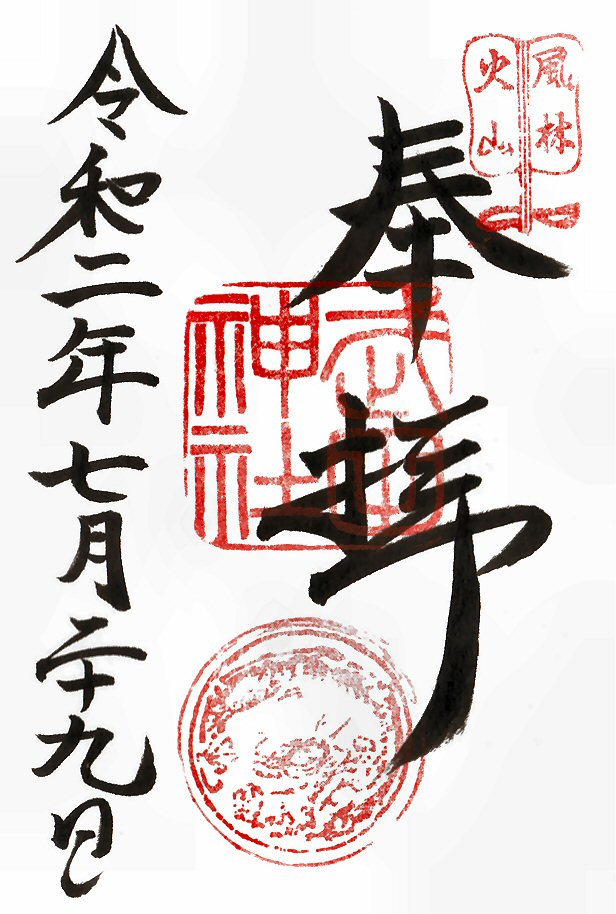 風林
火山
奉拝
武田
神社
令和二年七月二十九日